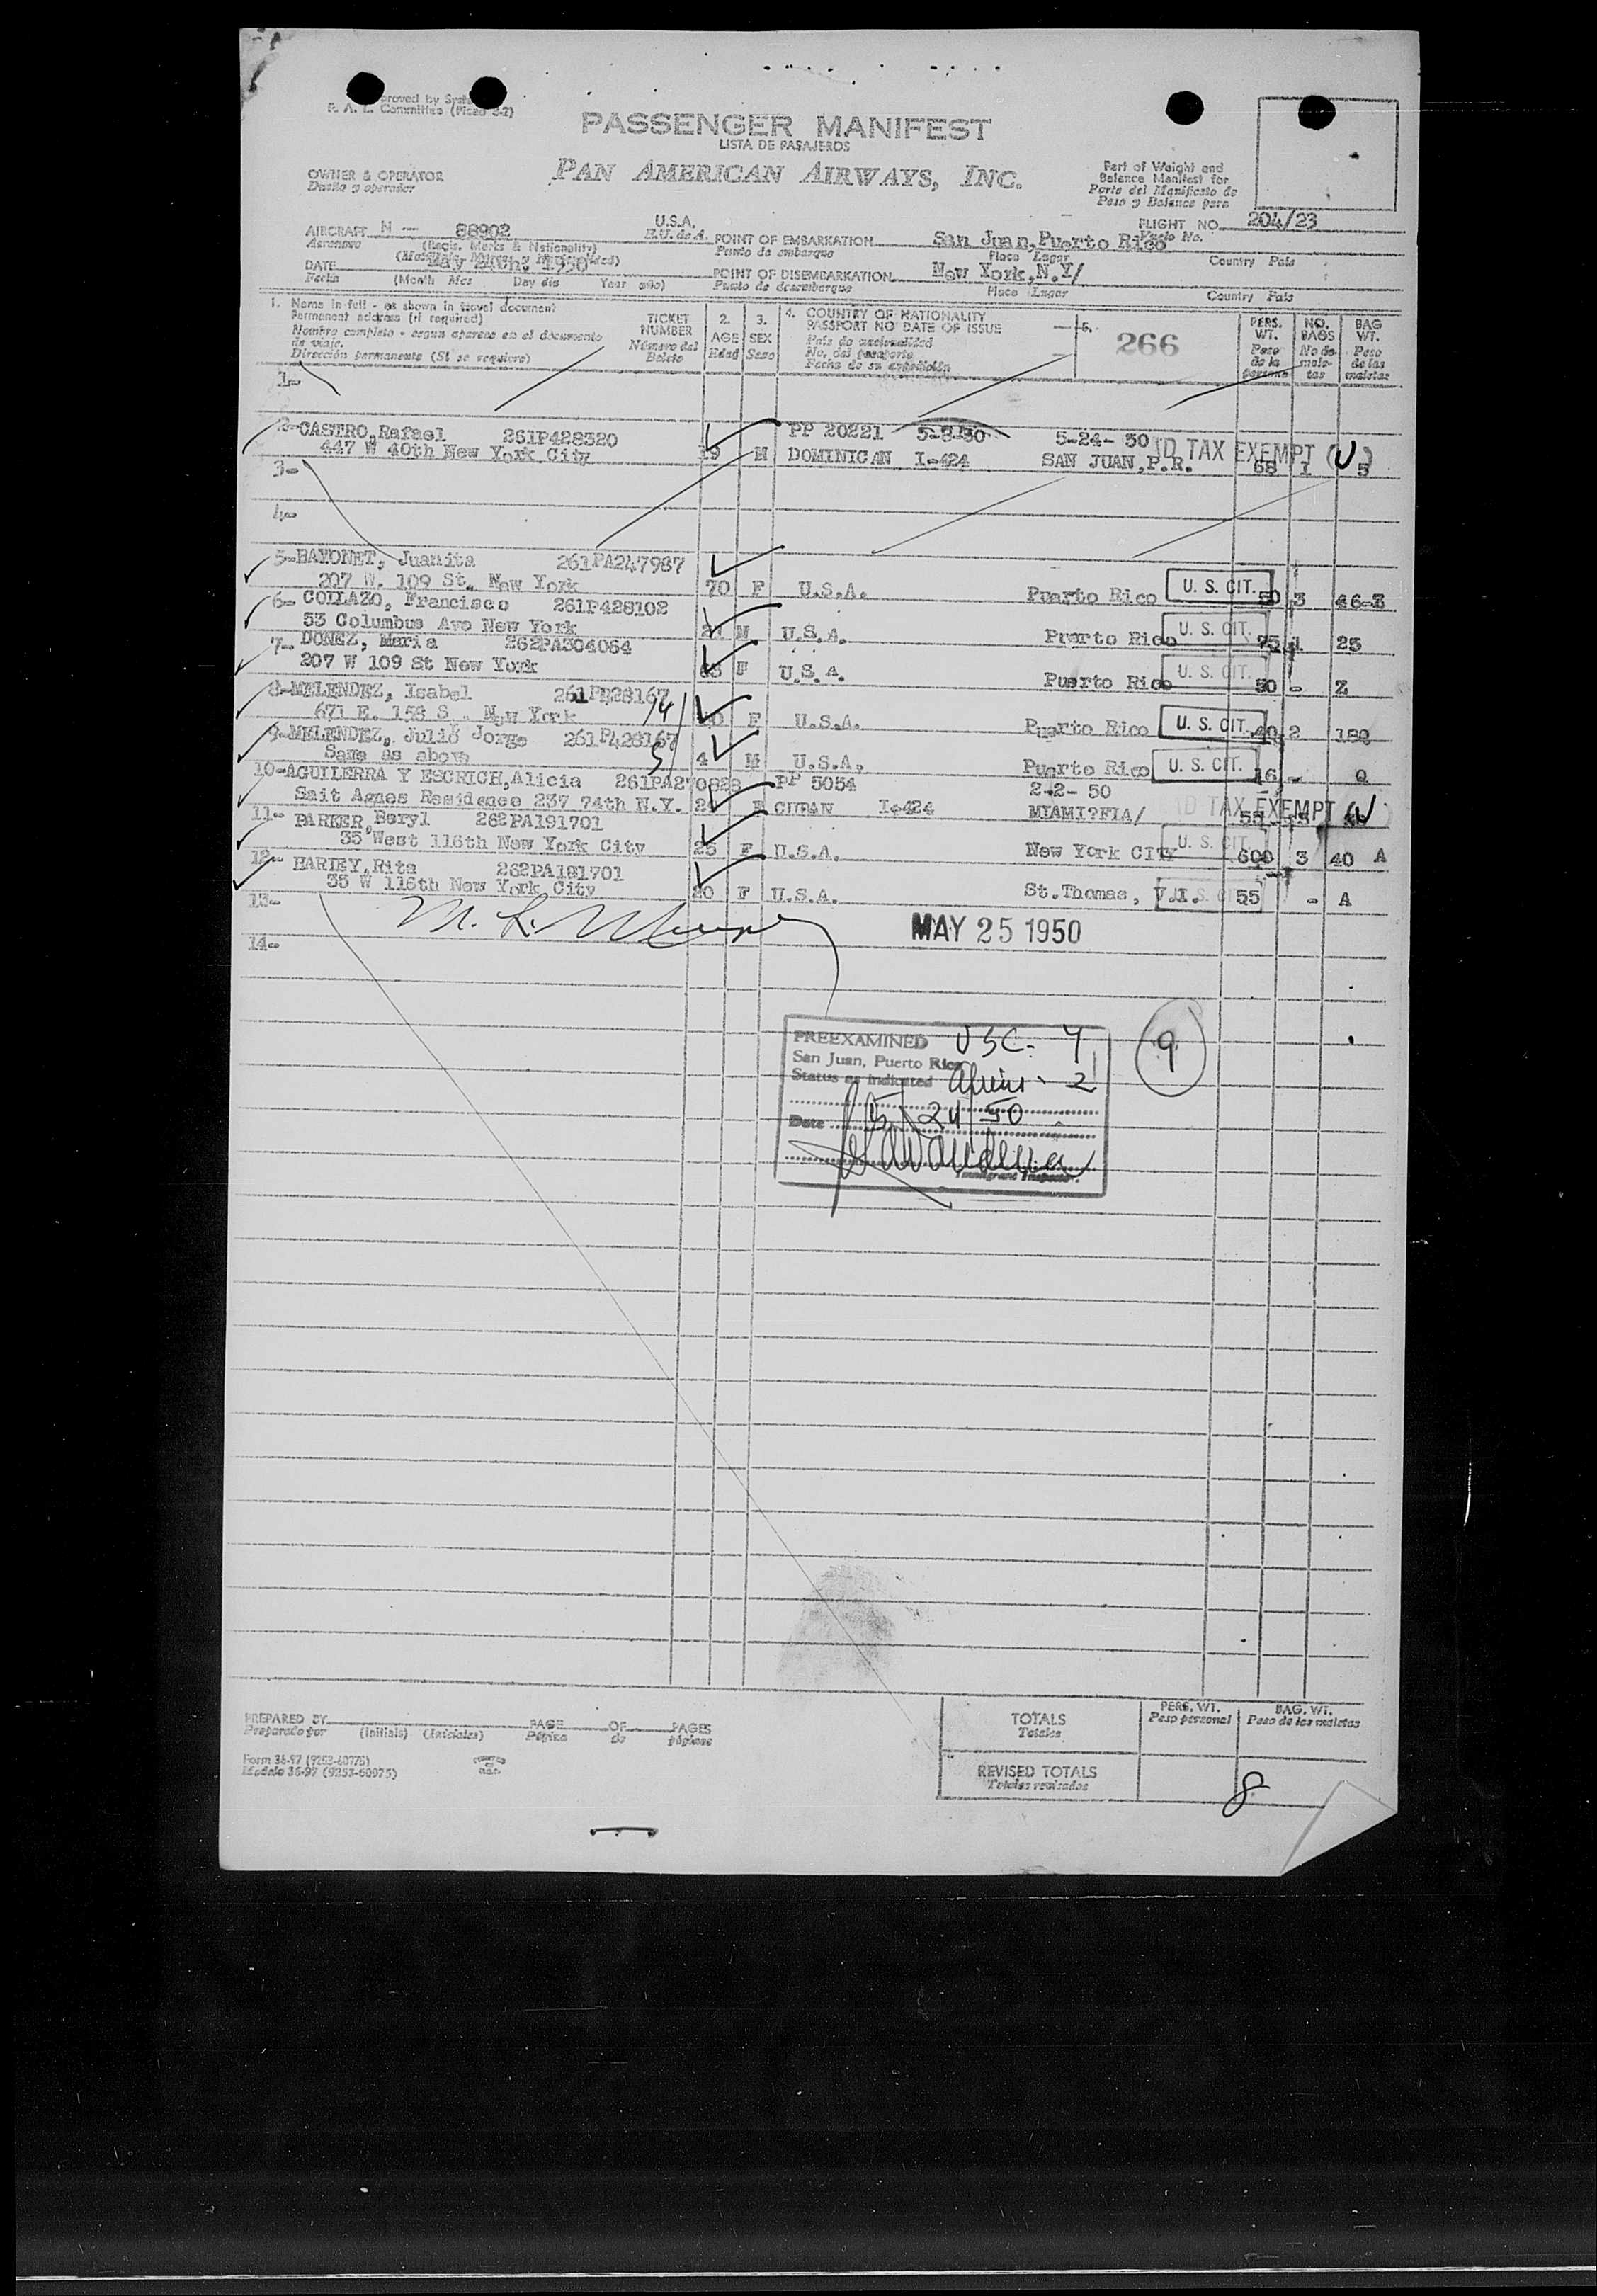 Approved by Syst
F. A. L. Committee (Piezo 3-2)
PASSENGER MANIFEST
LISTA DE PASAJEROS
PAN AMERICAN AIRWAYS, INC.
OWNER & OPERATOR
Dueño y operador
Part of Weight and
Balance Manifest for
Parte del Manifiesto de
Peso y Balance para
AIRCRAFT N — 88902 U.S.A.
Aeronave (Regis. Marks & Nationality) E.U. de A.
POINT OF EMBARKATION San Juan,Puerto Rico
Punto de embarque Place Lugar Country País
FLIGHT NO. 204/23
Vuelo No.
DATE May 24th, 1950
Fecha (Month Mes Day día Year año)
POINT OF DISEMBARKATION New York,N.Y/
Punto de desembarque Place Lugar Country País
1. Name in full - as shown in travel document
Permanent address (if required)
Nombre completo - segun aparece en el documento
de viaje.
Dirección permanente (Si se requiere)
TICKET
NUMBER
Número del
Boleto
2.
AGE
Edad
3.
SEX
Sexo
4. COUNTRY OF NATIONALITY
PASSPORT NO DATE OF ISSUE
País de nacionalidad
No. del pasaporte
Fecha de su expedición
5.
266
PERS.
WT.
Peso
de la
persona
NO.
BAGS
No de
male-
tas
BAG
WT.
Peso
de las
maletas
1-
2-CASTRO,Rafael 261P428320 PP 20221 5-8-50 5-24- 50
447 W 40th New York City 19 M DOMINICAN I-424 SAN JUAN,P.R. TAX EXEMPT (U) 68 1 5
3-
4-
5-BAYONET, Juanita 261PA247987
207 W. 109 St. New York 70 F U.S.A. Puerto Rico U. S. CIT. 50 3 46-Z
6- COLLAZO, Francisco 261P428102
53 Columbus Ave New York M U.S.A. Puerto Rico U. S. CIT. 75 1 25
7- DONEZ, Maria 262PA304064
207 W 109 St New York F U.S.A. Puerto Rico U. S. CIT. 50 - Z
8-MELENDEZ, Isabel
671 E. 158 S . New York F U.S.A. Puerto Rico U. S. CIT. 2
9-MELENDEZ, Julio Jorge 261P428167
Same as above 4 M U.S.A. Puerto Rico U. S. CIT. 16 - Q
10-AGUILERRA Y ESCRICH,Alicia 261PA270828 PP 5054 2-2- 50
Sait Agnes Residence 237 74th N.Y. F CUBAN I-424 MIAMI?FIA/ TAX EXEMPT (U)
11- PARKER,Beryl 262PA191701
35 West 116th New York City 25 F U.S.A. New York CITY U. S. CIT. 600 3 40 A
12- HARTEY,Rita 262PA191701
35 W 116th New York City 20 F U.S.A. St.Thomas, V.I. 55 - A
13-
MAY 25 1950
14-
PREEXAMINED USC- 7
San Juan, Puerto Rico
Status as indicated Aliens - 2
Date 5/24/50
Immigrant Inspector.
9
PREPARED BY
Preparado por (Initials) (Iniciales)
PAGE OF PAGES
Página de páginas
Form 36-97 (9253-60975)
Modelo 36-97 (9253-60975)
TOTALS
Totales
PERS. WT.
Peso personal
BAG. WT.
Peso de las maletas
REVISED TOTALS
Totales revisados
8